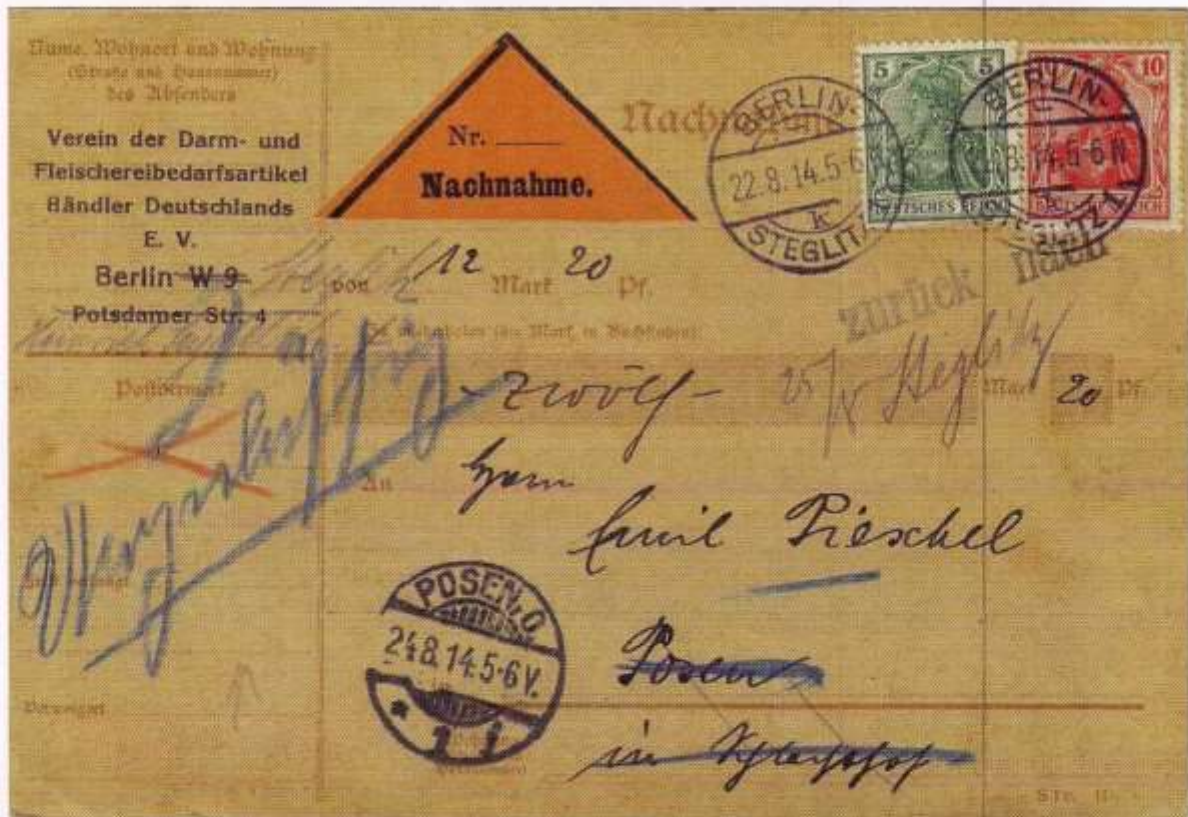 Name, Wohnort und Wohnung
(Straße und Hausnummer)
des Absenders
Verein der Darm- und
Fleischereibedarfsartikel
Händler Deutschlands
E. V.
Berlin W 9
Potsdamer Str. 4
Nr.
Nachnahme.
BERLIN-
22.8.14.5-6
k
STEGLITZ
5 5
DEUTSCHES REICH
10
BERLIN-
8.14.5-6 N
STEGLITZ 1
zurück nach
Steglitz
von 12 Mark 20 Pf.
Postvermerk
- Zwölf - Mark 20 Pf.
25/8 Steglitz
An
Herrn
Emil Pieschel
Posen
in Schlachthof
POSEN.O.
24.8.14.5-6V.
* 1 i